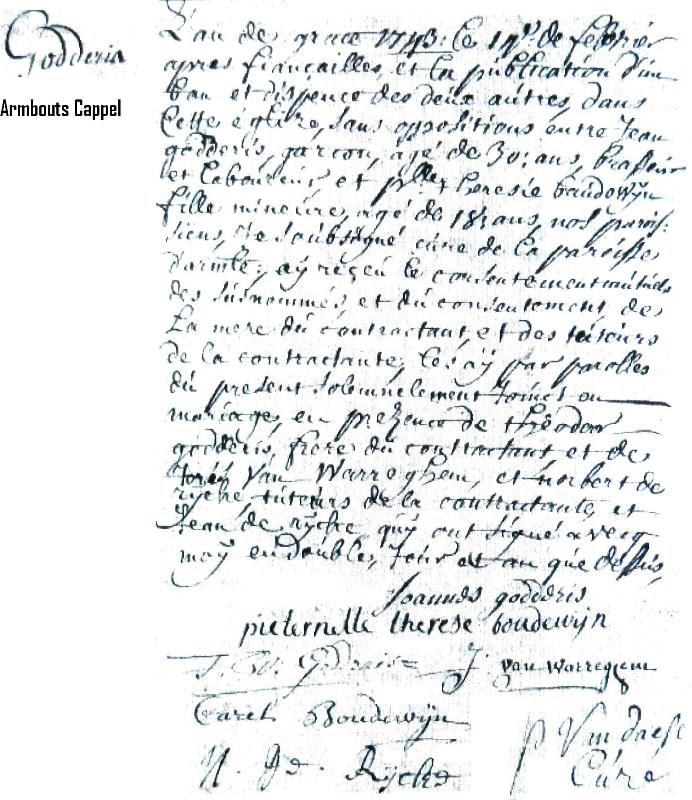 Godderis
Armbouts Cappel
L'an de grace 1743: le 19e de febvrier
apres fiançailles, et la publication d'un
ban et dispence des deux autres, dans
cette église, sans oppositions entre Jean
godderis, garcon, agé de 30: ans, brasseur
et laboureur, et theresie baudewÿn
fille mineure, agé de 18: ans, nos parois:
siens, Je soubsigné curé de la paroisse
d'armb:, aÿ reçeu le consentement mutuels
des susnommés, et du consentement des
La mere du contractant, et des tuteurs
de la contractante, les aÿ par parolles
du present solemnelement joinct en
mariage, en presence de theodor
godderis, frere du contractant, et de
van Warreghem, et norbert de
rÿcke, tuteurs de la contractante, et
Jean de rÿcke, quÿ ont signé avecq
moÿ en double, Jour et an que dessus,
Joannes godderis
pieternelle therese boudewijn
J. van warregem
Carel Boudewijn
N. De Rÿcke
p Van daele
Curé